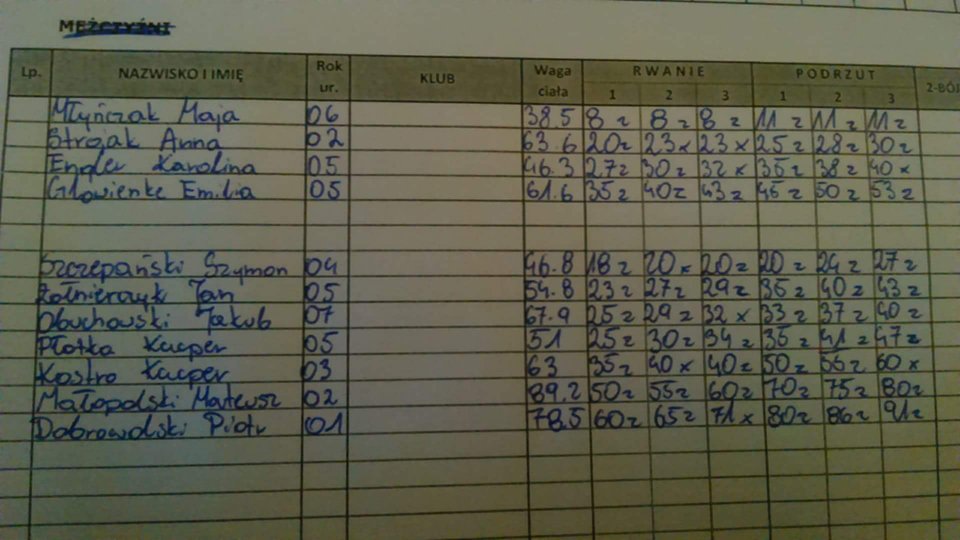 MĘŻCZYŹNI
Lp. NAZWISKO I IMIĘ Rok ur. KLUB Waga ciała RWANIE 1 2 3 PODRZUT 1 2 3 2-BÓJ
Młyńczak Maja 06 38.5 8z 8z 8z 11z 11z 11z
Strojak Anna 02 63.6 20z 23x 23x 25z 28z 30z
Engler Karolina 05 46.3 27z 30z 32x 35z 38z 40x
Głowienke Emilia 05 61.6 35z 40z 43z 46z 50z 53z
Szczepański Szymon 04 46.8 18z 20x 20z 20z 24z 27z
Żołnierczyk Jan 05 54.8 23z 27z 29z 35z 40z 43z
Obuchowski Jakub 07 67.9 25z 29z 32x 33z 37z 40z
Płotka Kacper 05 51 25z 30z 34z 35z 41z 47z
Kostro Kacper 03 63 35z 40x 40z 50z 56z 60x
Małopolski Mateusz 02 89.2 50z 55z 60z 70z 75z 80z
Dobrowolski Piotr 01 78.5 60z 65z 71x 80z 86z 91z